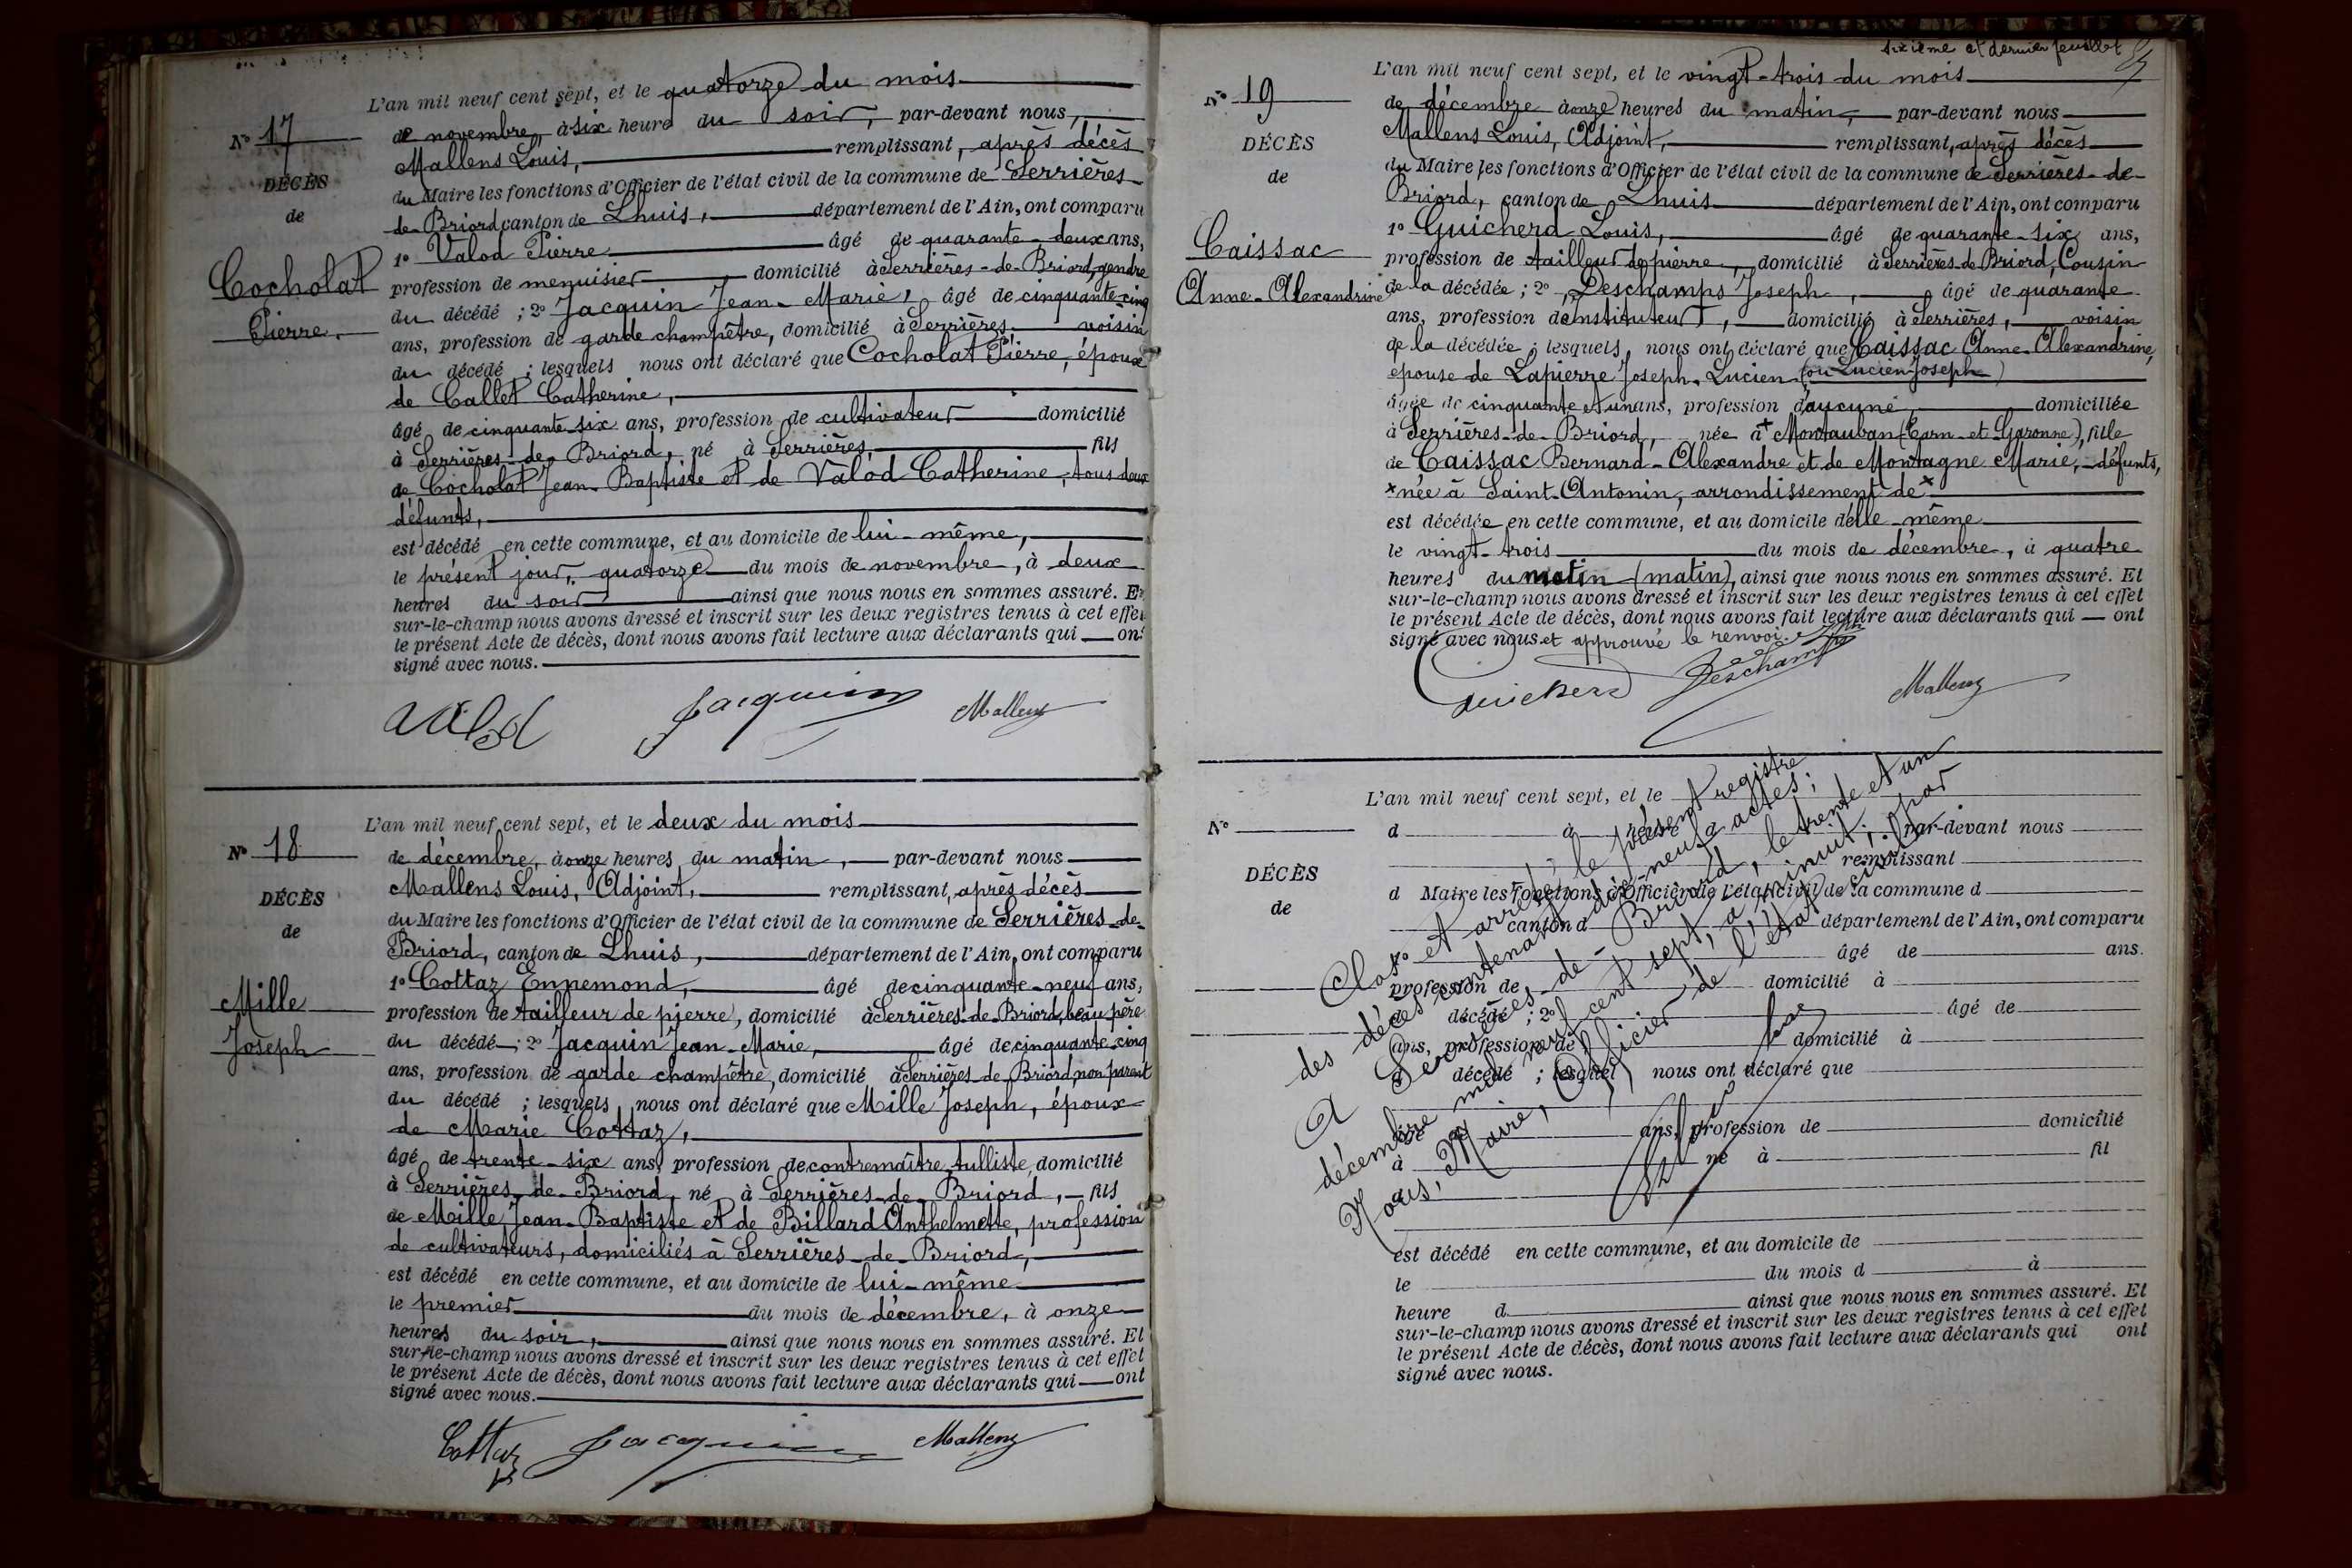 L'an mil neuf cent sept, et le quatorze du mois
de novembre, à six heures du soir, par-devant nous,
Nº 17
Mallens Louis, remplissant, après décès
DÉCÈS
du Maire les fonctions d'Officier de l'état civil de la commune de Serrières-
de
de-Briord canton de Lhuis, département de l'Ain, ont comparu
1º Valod Pierre âgé de quarante-deux ans,
Cocholat
Pierre.
profession de menuisier, domicilié à Serrières-de-Briord, gendre
du décédé ; 2º Jacquin Jean-Marie, âgé de cinquante-cinq
ans, profession de garde champêtre, domicilié à Serrières voisin
du décédé ; lesquels nous ont déclaré que Cocholat Pierre, époux
de Callet Catherine,
âgé de cinquante-six ans, profession de cultivateur domicilié
à Serrières-de-Briord, né à Serrières, fils
de Cocholat Jean-Baptiste et de Valod Catherine, tous deux
défunts,
est décédé en cette commune, et au domicile de lui-même,
le présent jour, quatorze du mois de novembre, à deux
heures du soir ainsi que nous nous en sommes assuré. Et
sur-le-champ nous avons dressé et inscrit sur les deux registres tenus à cet effet
le présent Acte de décès, dont nous avons fait lecture aux déclarants qui ont
signé avec nous.
Valod Jacquin Mallens
L'an mil neuf cent sept, et le deux du mois
Nº 18
de décembre, à onze heures du matin, par-devant nous
Mallens Louis, Adjoint, remplissant, après décès
DÉCÈS
du Maire les fonctions d'Officier de l'état civil de la commune de Serrières-de-
de
Briord, canton de Lhuis, département de l'Ain, ont comparu
1º Cottaz Ennemond, âgé de cinquante-neuf ans,
Mille
Joseph
profession de tailleur de pierre, domicilié à Serrières-de-Briord, beau père
du décédé ; 2º Jacquin Jean-Marie, âgé de cinquante-cinq
ans, profession de garde champêtre, domicilié à Serrières-de-Briord, non parent
du décédé ; lesquels nous ont déclaré que Mille Joseph, époux
de Marie Cottaz,
âgé de trente-six ans, profession de contremaître tulliste, domicilié
à Serrières-de-Briord, né à Serrières-de-Briord, fils
de Mille Jean-Baptiste et de Billard Anthelmette, profession
de cultivateurs, domiciliés à Serrières-de-Briord,
est décédé en cette commune, et au domicile de lui-même
le premier du mois de décembre, à onze
heures du soir, ainsi que nous nous en sommes assuré. Et
sur-le-champ nous avons dressé et inscrit sur les deux registres tenus à cet effet
le présent Acte de décès, dont nous avons fait lecture aux déclarants qui ont
signé avec nous.
Cottaz Jacquin Mallens
sixième et dernier feuillet
L'an mil neuf cent sept, et le vingt-trois du mois
Nº 19
de décembre à onze heures du matin, par-devant nous
Mallens Louis, Adjoint, remplissant, après décès
DÉCÈS
du Maire les fonctions d'Officier de l'état civil de la commune de Serrières-de-
de
Briord, canton de Lhuis département de l'Ain, ont comparu
1º Guicherd Louis, âgé de quarante-six ans,
Caissac
Anne-Alexandrine
profession de tailleur de pierre, domicilié à Serrières-de-Briord, Cousin
de la décédée ; 2º, Deschamps Joseph, âgé de quarante
ans, profession d'instituteur, domicilié à Serrières, voisin
de la décédée ; lesquels nous ont déclaré que Caissac Anne-Alexandrine,
épouse de Lapierre Joseph-Lucien (ou Lucien-Joseph)
âgée de cinquante et un ans, profession d'aucune, domiciliée
à Serrières-de-Briord, née à + Montauban (Tarn-et-Garonne), fille
de Caissac Bernard-Alexandre et de Montagne Marie, défunts,
x née à Saint-Antonin, arrondissement de x
est décédée en cette commune, et au domicile d'elle-même
le vingt-trois du mois de décembre, à quatre
heures du matin (matin), ainsi que nous nous en sommes assuré. Et
sur-le-champ nous avons dressé et inscrit sur les deux registres tenus à cet effet
le présent Acte de décès, dont nous avons fait lecture aux déclarants qui ont
signé avec nous et approuvé le renvoi.
Guicherd Deschamps Jph Mallens
L'an mil neuf cent sept, et le
Nº
d à heure d par-devant nous
remplissant
DÉCÈS
d Maire les fonctions d'Officier de l'état civil de la commune d
de
canton d département de l'Ain, ont comparu
1º âgé de ans.
profession de domicilié à
décédé ; 2º âgé de
ans, profession de domicilié à
décédé ; lesquel nous ont déclaré que
âgé de ans, profession de domicilié
à né à fil
de
est décédé en cette commune, et au domicile de
le du mois d à
heure d ainsi que nous nous en sommes assuré. Et
sur-le-champ nous avons dressé et inscrit sur les deux registres tenus à cet effet
le présent Acte de décès, dont nous avons fait lecture aux déclarants qui ont
signé avec nous.
Clos et arrêté, le présent registre
des décès contenant dix-neuf actes ;
A Serrières-de-Briord, le trente et un
décembre mil neuf cent sept, à minuit ; par
Nous, Maire, Officier de l'état civil.